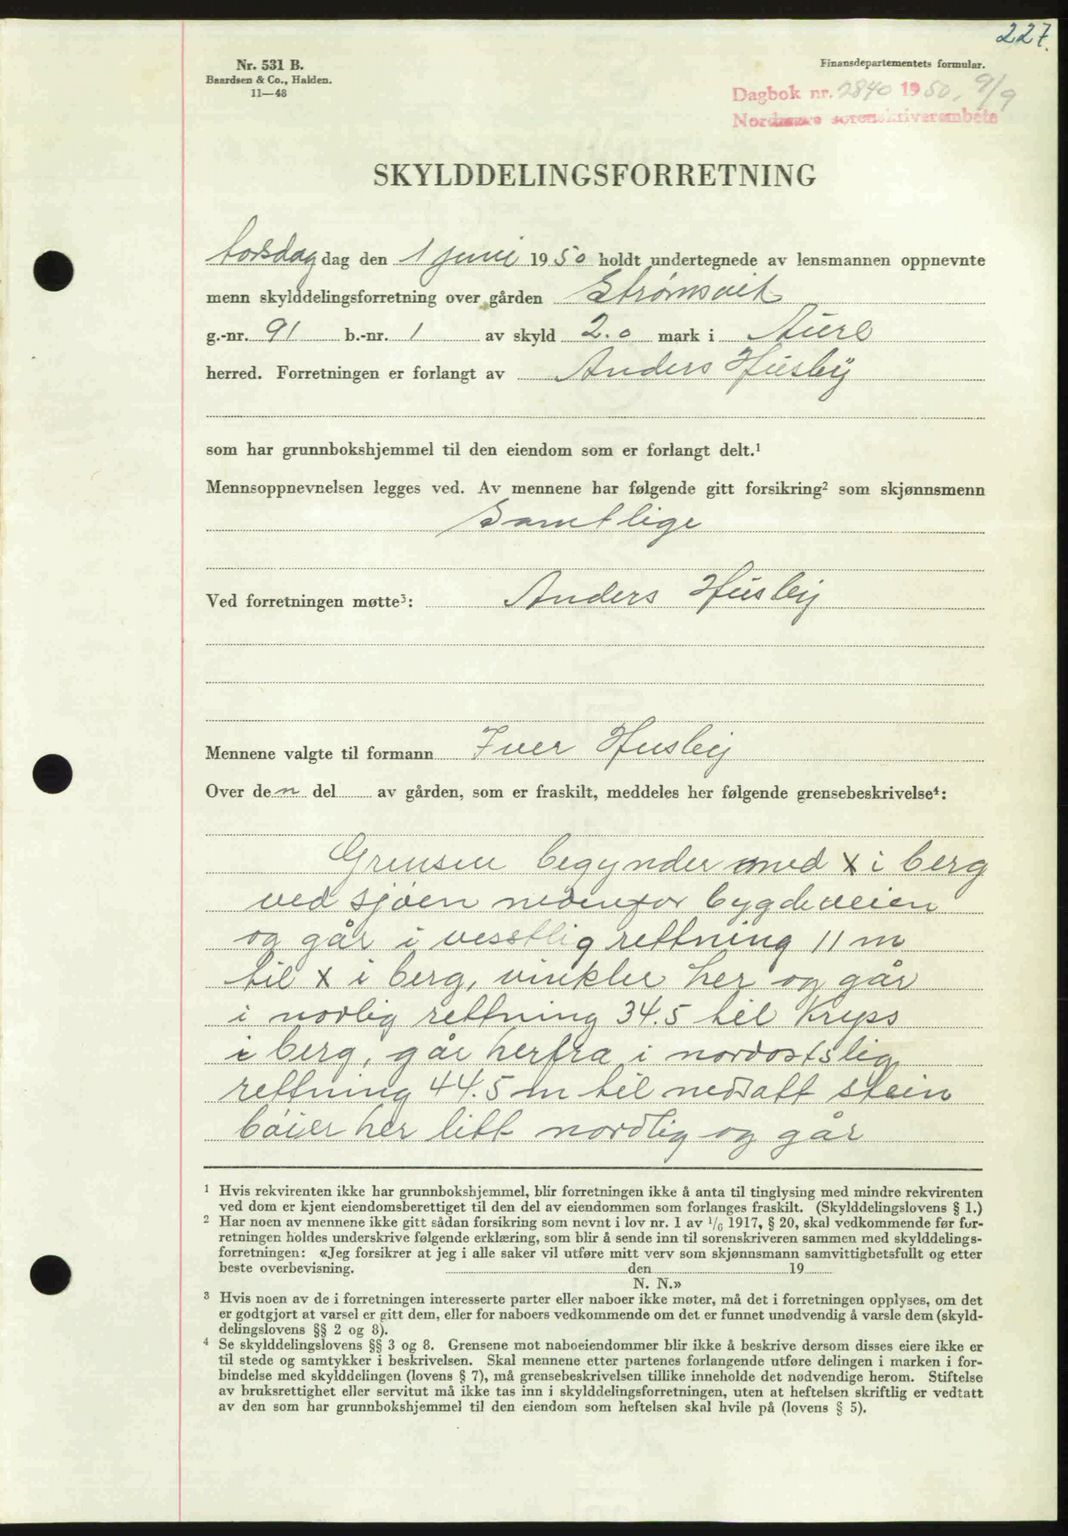 227.
Nr. 531 B.
Baardsen & Co., Halden.
11—48
Finansdepartementets formular.
Dagbok nr. 2840 1950, 9/9
Nordmøre sorenskriverembete
SKYLDDELINGSFORRETNING
torsdag dag den 1 juni 1950 holdt undertegnede av lensmannen oppnevnte
menn skylddelingsforretning over gården Strømsvik
g.-nr. 91 b.-nr. 1 av skyld 2.0 mark i Aure
herred. Forretningen er forlangt av Anders Husby
som har grunnbokshjemmel til den eiendom som er forlangt delt.¹
Mennsoppnevnelsen legges ved. Av mennene har følgende gitt forsikring² som skjønnsmenn
Samtlige
Ved forretningen møtte³: Anders Husby
Mennene valgte til formann Iver Husby
Over den del av gården, som er fraskilt, meddeles her følgende grensebeskrivelse⁴:
Grensen begynder med x i berg
ved sjøen nedenfor bygdeveien
og går i vesstlig rettning 11 m
til x i berg, vinkler her og går
i nordlig rettning 34.5 til kryss
i berg, går herfra i nordostslig
rettning 44.5 m til nedsatt stein
bøier her litt nordlig og går
¹ Hvis rekvirenten ikke har grunnbokshjemmel, blir forretningen ikke å anta til tinglysing med mindre rekvirenten
ved dom er kjent eiendomsberettiget til den del av eiendommen som forlanges fraskilt. (Skylddelingslovens § 1.)
² Har noen av mennene ikke gitt sådan forsikring som nevnt i lov nr. 1 av 1/6 1917, § 20, skal vedkommende før for-
retningen holdes underskrive følgende erklæring, som blir å sende inn til sorenskriveren sammen med skylddelings-
forretningen: «Jeg forsikrer at jeg i alle saker vil utføre mitt verv som skjønnsmann samvittighetsfullt og etter
beste overbevisning. den 19
N. N.»
³ Hvis noen av de i forretningen interesserte parter eller naboer ikke møter, må det i forretningen opplyses, om det
er godtgjort at varsel er gitt dem, eller for naboers vedkommende om det er funnet unødvendig å varsle dem (skyld-
delingslovens §§ 2 og 8).
⁴ Se skylddelingslovens §§ 3 og 8. Grensene mot naboeiendommer blir ikke å beskrive dersom disses eiere ikke er
til stede og samtykker i beskrivelsen. Skal mennene etter partenes forlangende utføre delingen i marken i for-
bindelse med skylddelingen (lovens § 7), må grensebeskrivelsen tillike inneholde det nødvendige herom. Stiftelse
av bruksrettighet eller servitut må ikke tas inn i skylddelingsforretningen, uten at heftelsen skriftlig er vedtatt
av den som har grunnbokshjemmel til den eiendom som heftelsen skal hvile på (lovens § 5).